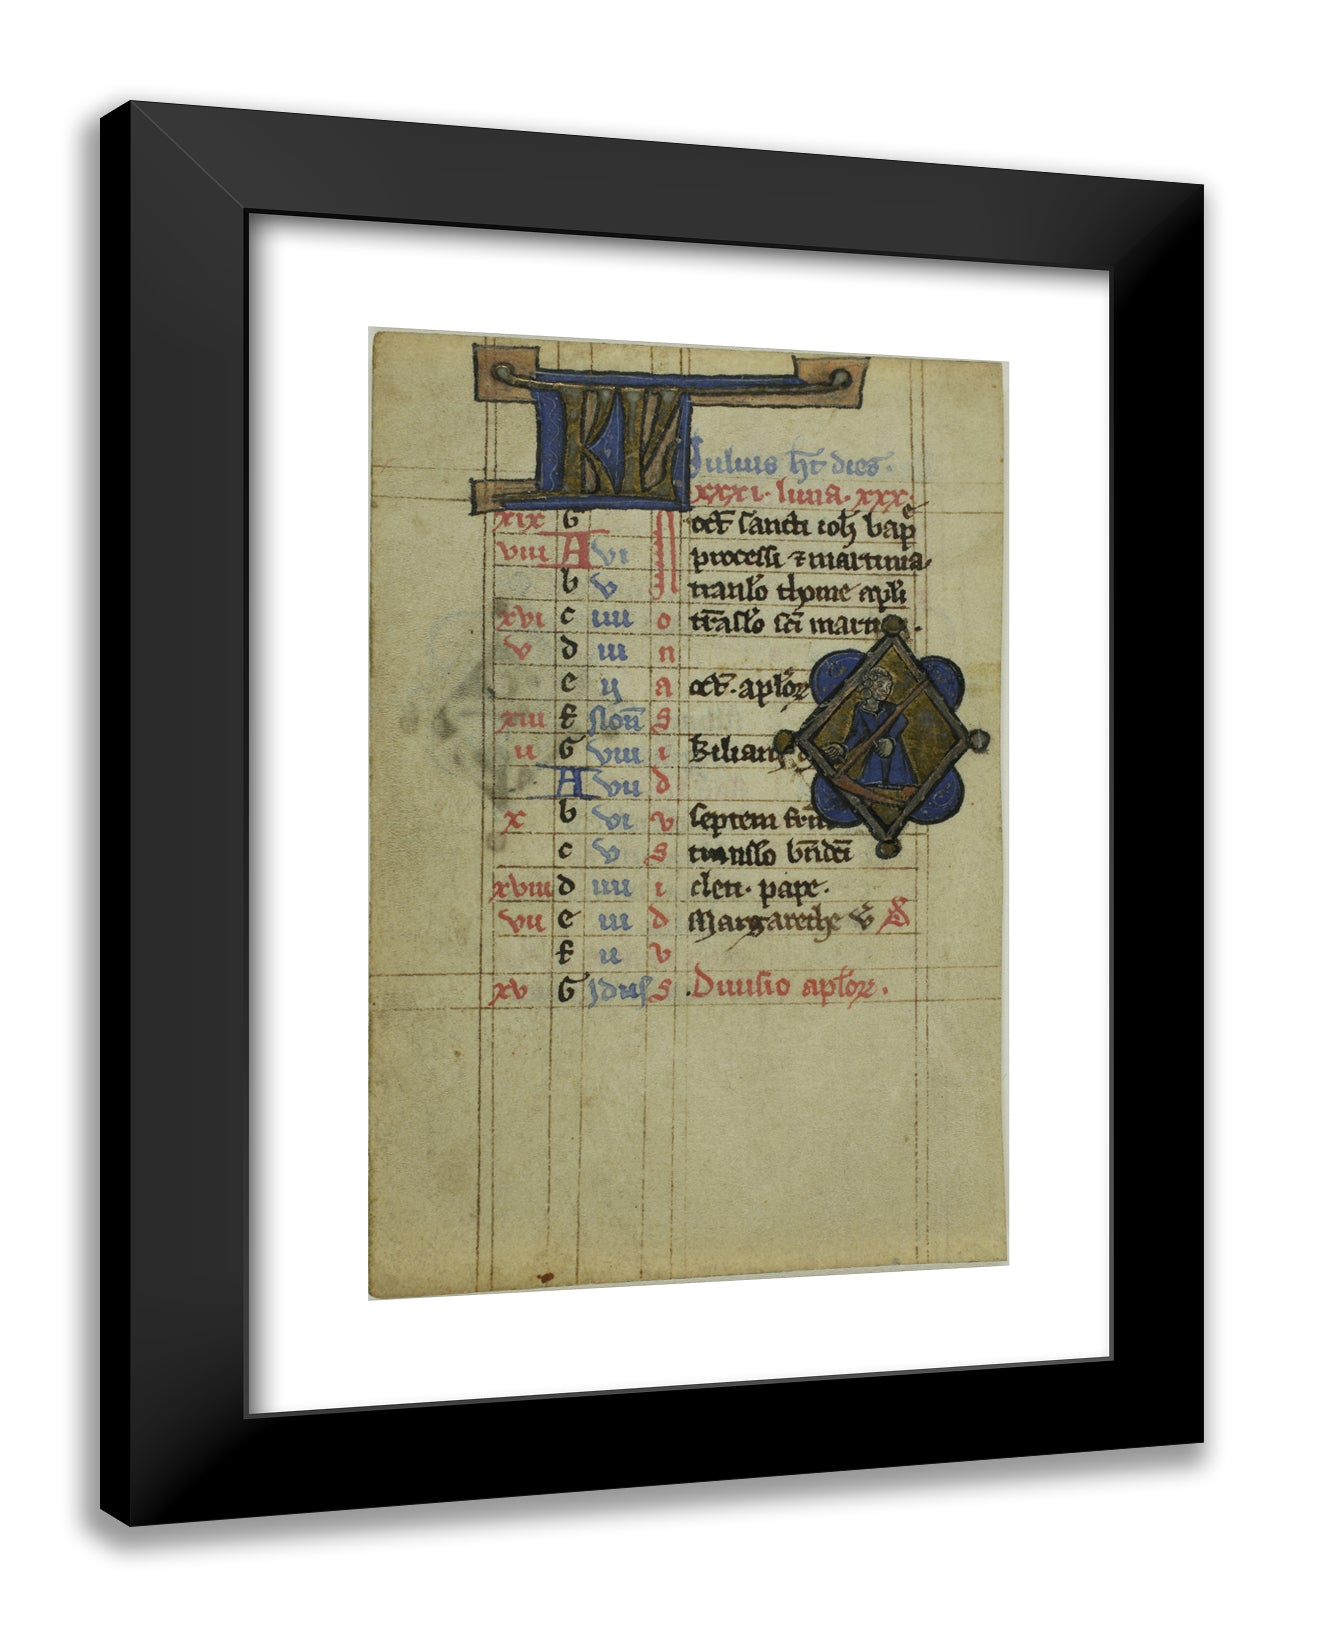 KL
Iulius ht dies.
xxxi. luna. xxx.
xix G oct sancti ioh bap
viii A vi processi ⁊ martinia
b v translo thome apli
xvi c iiii o trāslo sci martini.
v d iii n
e ij a oct. aplor
xiii f Non s
ii G viii i Kiliani
A vii d
x b vi v septem frm
c v s translo bndci
xviii d iiii i cleti. pape.
vii e iii d Margarethe v̄
f ii v
xv G Idus s Diuisio aplor.